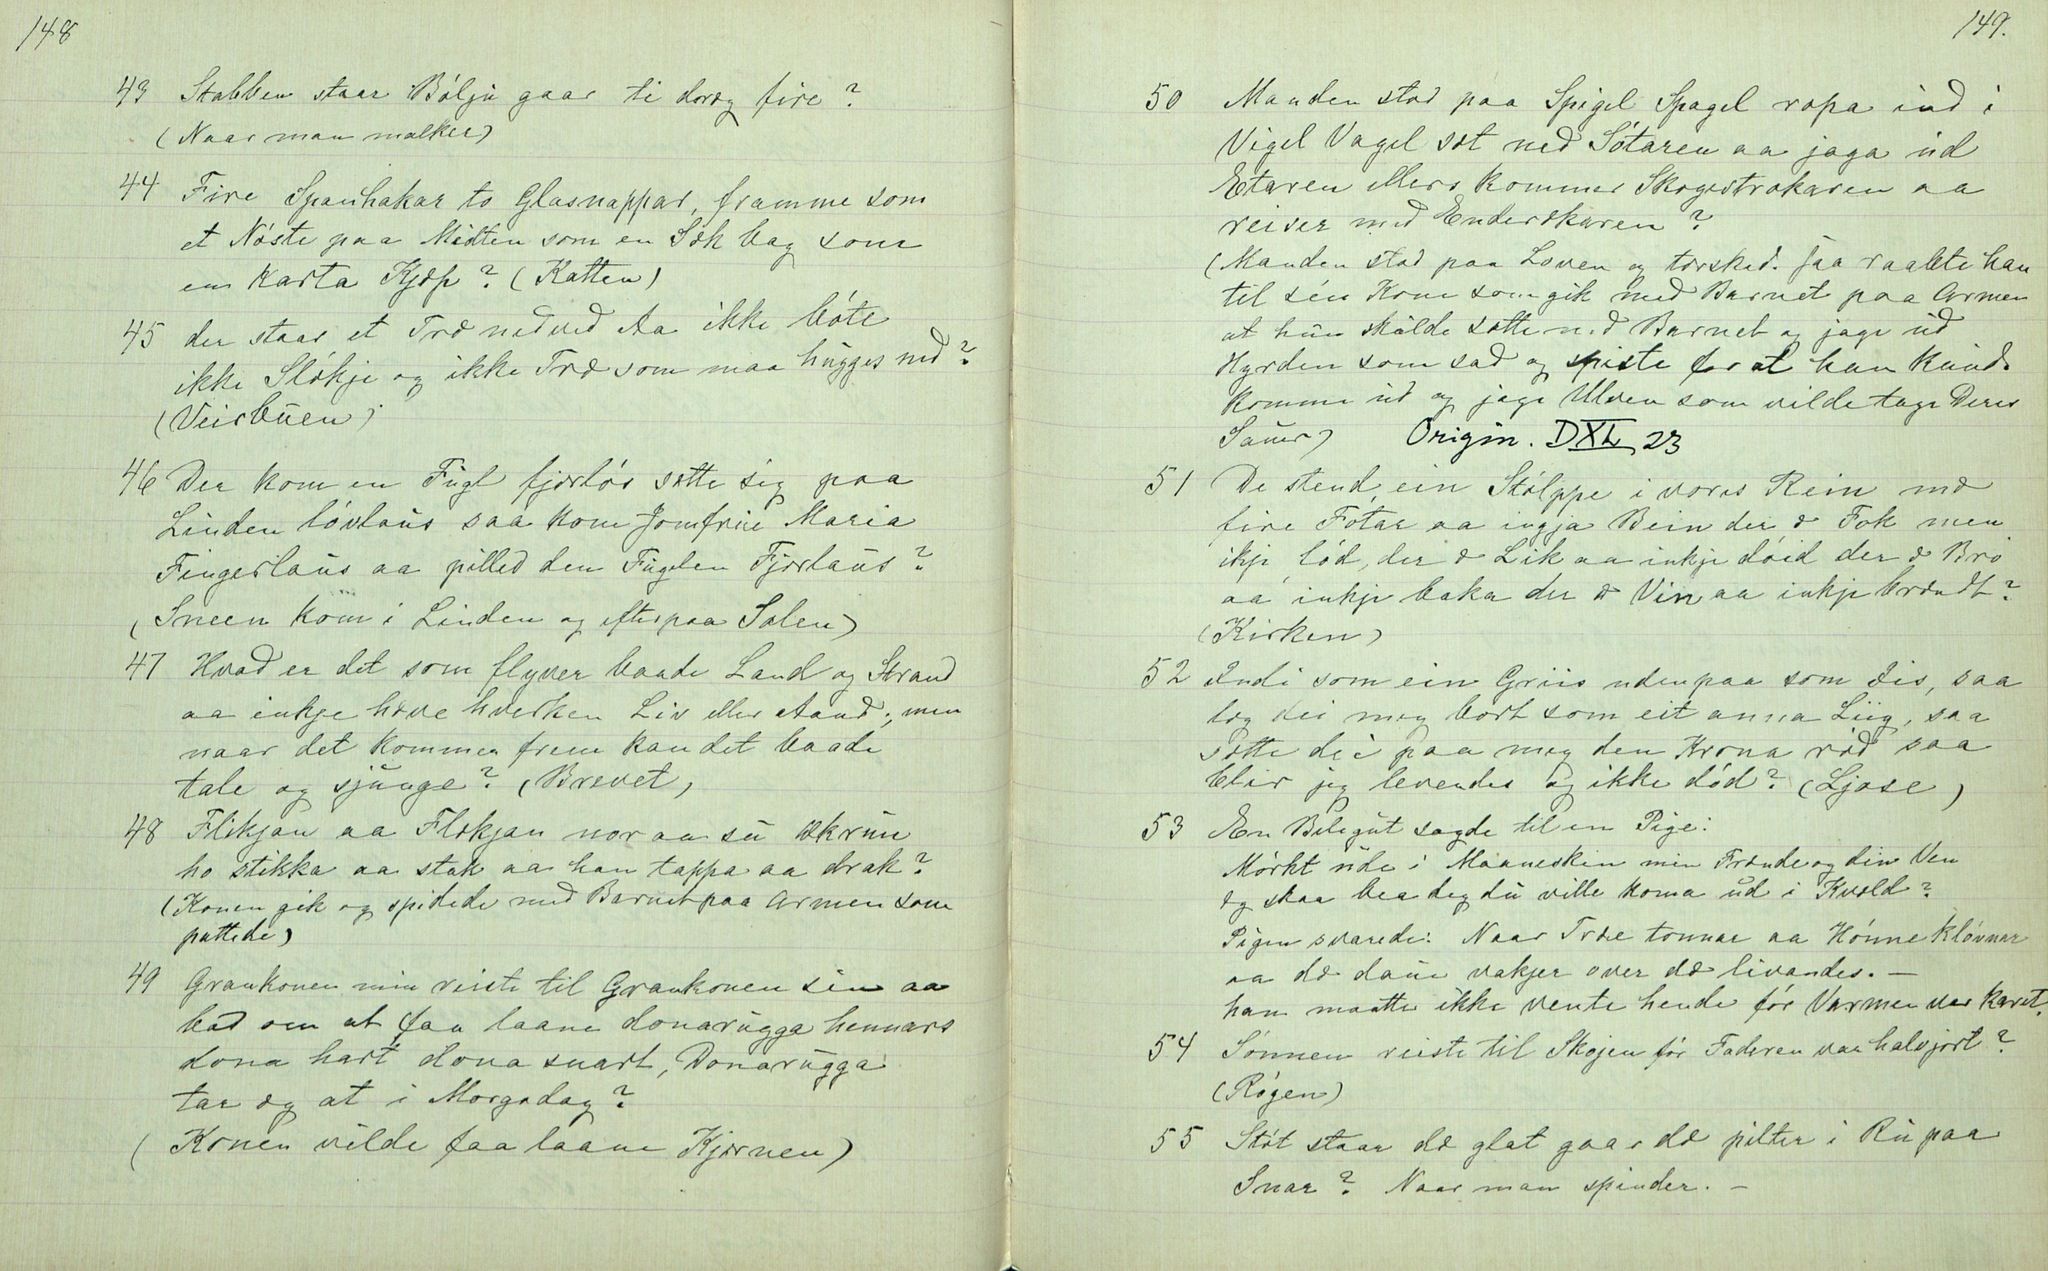 148
43 Stabben staar Bólju gaar ti dræg fire?
(Naar man malker)
44 Fire Spanhakar to Glasnappar, framme som
et Nóste paa Midten som en Sæk bag som
en Karta Kjæp? (Katten)
45 der staar et Træ nedved Aa ikke bóte
ikke Slókje og ikke Træ som maa hugges ned?
(Veirbuen)
46 Der kom en Fugl fjørlós sætte sig paa
Linden lóvlaus saa kom Jomfrue Maria
Fingerlaus aa pilled den Fuglen Fjørlaus?
(Sneen kom i Linden og efterpaa Solen)
47 Hvad er det som flyver baade Land og Strand
aa inkje have hverken Liv eller Aand, men
naar det kommer frem kan det baade
tale og sjunge? (Brevet)
48 Flikjan aa Flækjan nor aa su
ho stikka aa stak aa han tappa aa drak?
(Konen gik og spidede med Barnet paa Armen som
pattede)
49 Grankonen min reiste til Grankonen sin aa
bad om at faa laane donarugga hennars
dona hart dona snart, Donarugga
tar æg at i Morgadag?
(Konen vilde faa laane Kjærnen)
149.
50 Manden stod paa Spigel Spagel ropa ind i
Vigel Vagel sæt ned Sótaren aa jaga ud
Etaren ellers kommer Skogestrakaren aa
reiser med Enderskaren?
(Manden stod paa Loven og tærsked. saa raabte han
til sin Kone som gik med Barnet paa Armen
at hun skulde sætte ned Barnet og jage ud
Hyrden som sad og spiste for at han kunde
komme ud og jage Ulven som vilde tage Deres
Sauer) Origin. DXL 23
51 De stend ein Stólppe i vores Rein med
fire Fotar aa ingja Bein der æ Fok men
ikje lód, der æ Lik aa inkje dóid der æ Bró
aa inkje baka der æ Vin aa inkje brændt?
(Kirken)
52 Indi som ein Griis udenpaa som Iis, saa
tog dei meg bort som eit anna Liig, saa
sætte dei paa meg den Krona ród saa
blir jeg levendes og ikke dód? (Ljose)
53 En Belegut sagde til en Pige:
Mórkt ude i Maaneskin min Frænde og din Ven
æg skaa bea deg du ville koma ud i Kvæld?
Pigen svarede: Naar Træe tonnar aa Hónne klóvnar
aa dæ daue vakjer over dæ livandes. —
han maatte ikke vente hende fór Varmen var karet.
54 Sónnen reiste til Skojen fór Faderen var halvgjort?
(Rógen)
55 Stót staar dæ glat gaar dæ pilter i Ru paa
Snar? Naar man spinder. —